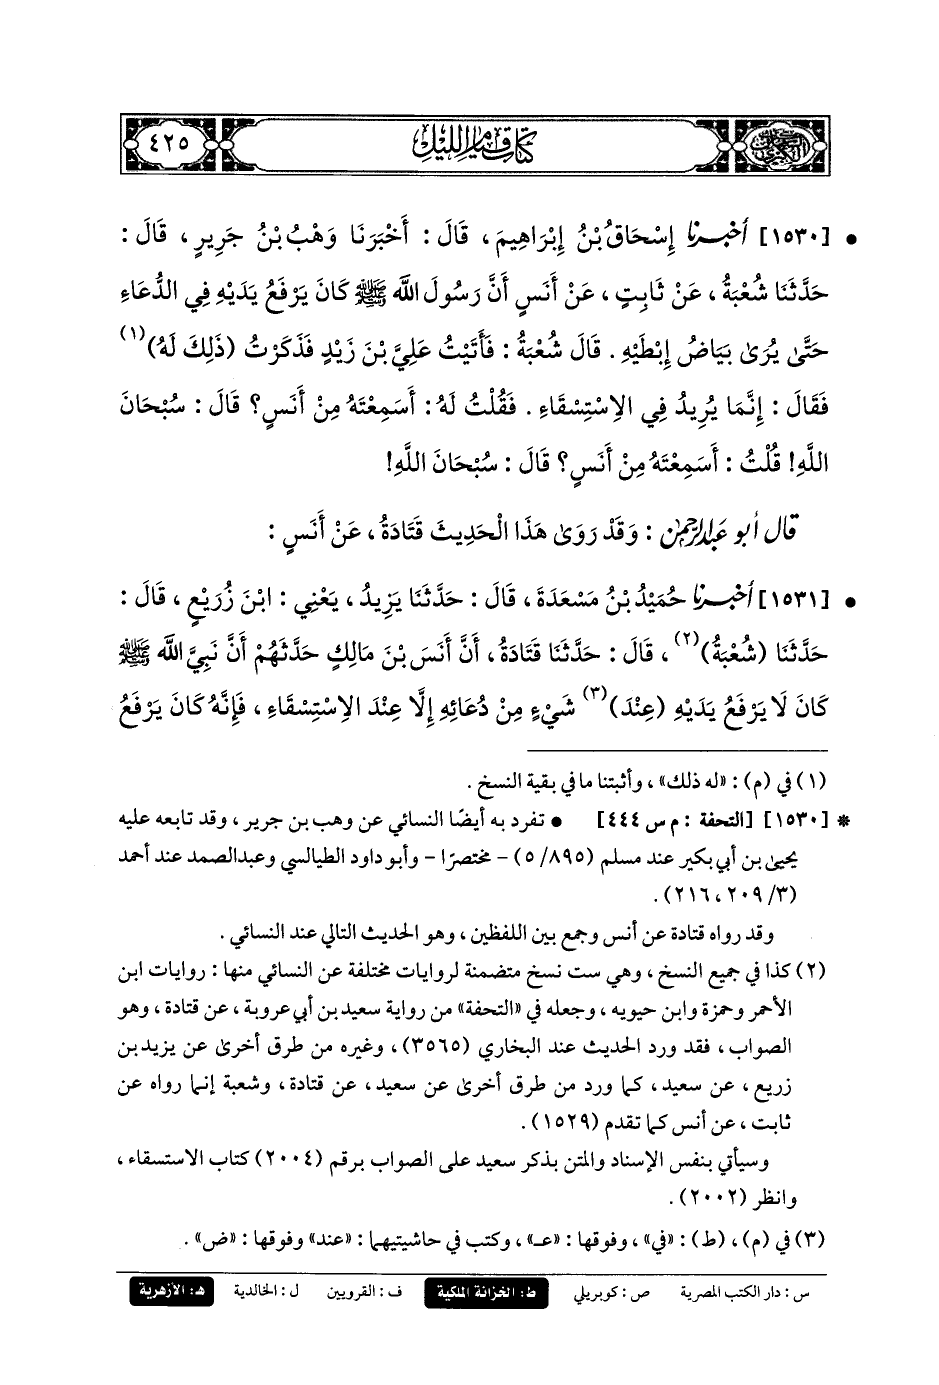 السنن الكبرى كتاب قيام الليل ٤٢٥
• [١٥٣٠] أَخْبَرَنَا إِسْحَاقُ بْنُ إِبْرَاهِيمَ، قَالَ: أَخْبَرَنَا وَهْبُ بْنُ جَرِيرٍ، قَالَ:
حَدَّثَنَا شُعْبَةُ، عَنْ ثَابِتٍ، عَنْ أَنَسٍ أَنَّ رَسُولَ اللَّه ﷺ كَانَ يَرْفَعُ يَدَيْهِ فِي الدُّعَاءِ
حَتَّىٰ يُرَىٰ بَيَاضُ إِبْطَيْهِ. قَالَ شُعْبَةُ: فَأَتَيْتُ عَلِيَّ بْنَ زَيْدٍ فَذَكَرْتُ (ذَلِكَ لَهُ)(١)
فَقَالَ: إِنَّمَا يُرِيدُ فِي الِاسْتِسْقَاءِ. فَقُلْتُ لَهُ: أَسَمِعْتَهُ مِنْ أَنَسٍ؟ قَالَ: سُبْحَانَ
اللَّهِ! قُلْتُ: أَسَمِعْتَهُ مِنْ أَنَسٍ؟ قَالَ: سُبْحَانَ اللَّهِ!
قال أبو عبد الرحمن: وَقَدْ رَوَىٰ هَذَا الْحَدِيثَ قَتَادَةُ، عَنْ أَنَسٍ:
• [١٥٣١] أَخْبَرَنَا حُمَيْدُ بْنُ مَسْعَدَةَ، قَالَ: حَدَّثَنَا يَزِيدُ، يَعْنِي: ابْنَ زُرَيْعٍ، قَالَ:
حَدَّثَنَا (شُعْبَةُ)(٢)، قَالَ: حَدَّثَنَا قَتَادَةُ، أَنَّ أَنَسَ بْنَ مَالِكٍ حَدَّثَهُمْ أَنَّ نَبِيَّ اللَّه ﷺ
كَانَ لَا يَرْفَعُ يَدَيْهِ (عِنْدَ)(٣) شَيْءٍ مِنْ دُعَائِهِ إِلَّا عِنْدَ الِاسْتِسْقَاءِ، فَإِنَّهُ كَانَ يَرْفَعُ
(١) في (م): «له ذلك»، وأثبتنا ما في بقية النسخ.
* [١٥٣٠] [التحفة: م س ٤٤٤] • تفرد به أيضًا النسائي عن وهب بن جرير، وقد تابعه عليه
يحيىٰ بن أبي بكير عند مسلم (٨٩٥/ ٥) - مختصرًا - وأبو داود الطيالسي وعبدالصمد عند أحمد
(٣/ ٢٠٩، ٢١٦).
وقد رواه قتادة عن أنس وجمع بين اللفظين، وهو الحديث التالي عند النسائي.
(٢) كذا في جميع النسخ، وهي ست نسخ متضمنة لروايات مختلفة عن النسائي منها: روايات ابن
الأحمر وحمزة وابن حيويه، وجعله في «التحفة» من رواية سعيد بن أبي عروبة، عن قتادة، وهو
الصواب، فقد ورد الحديث عند البخاري (٣٥٦٥)، وغيره من طرق أخرىٰ عن يزيد بن
زريع، عن سعيد، كما ورد من طرق أخرىٰ عن سعيد، عن قتادة، وشعبة إنما رواه عن
ثابت، عن أنس كما تقدم (١٥٢٩).
وسيأتي بنفس الإسناد والمتن بذكر سعيد على الصواب برقم (٢٠٠٤) كتاب الاستسقاء،
وانظر (٢٠٠٢).
(٣) في (م)، (ط): «في»، وفوقها: «عـ»، وكتب في حاشيتيهما: «عند» وفوقها: «ض».
س: دار الكتب المصرية ص: كوبريلي ط: الخزانة الملكية ف: القرويين ل: الخالدية هـ: الأزهرية